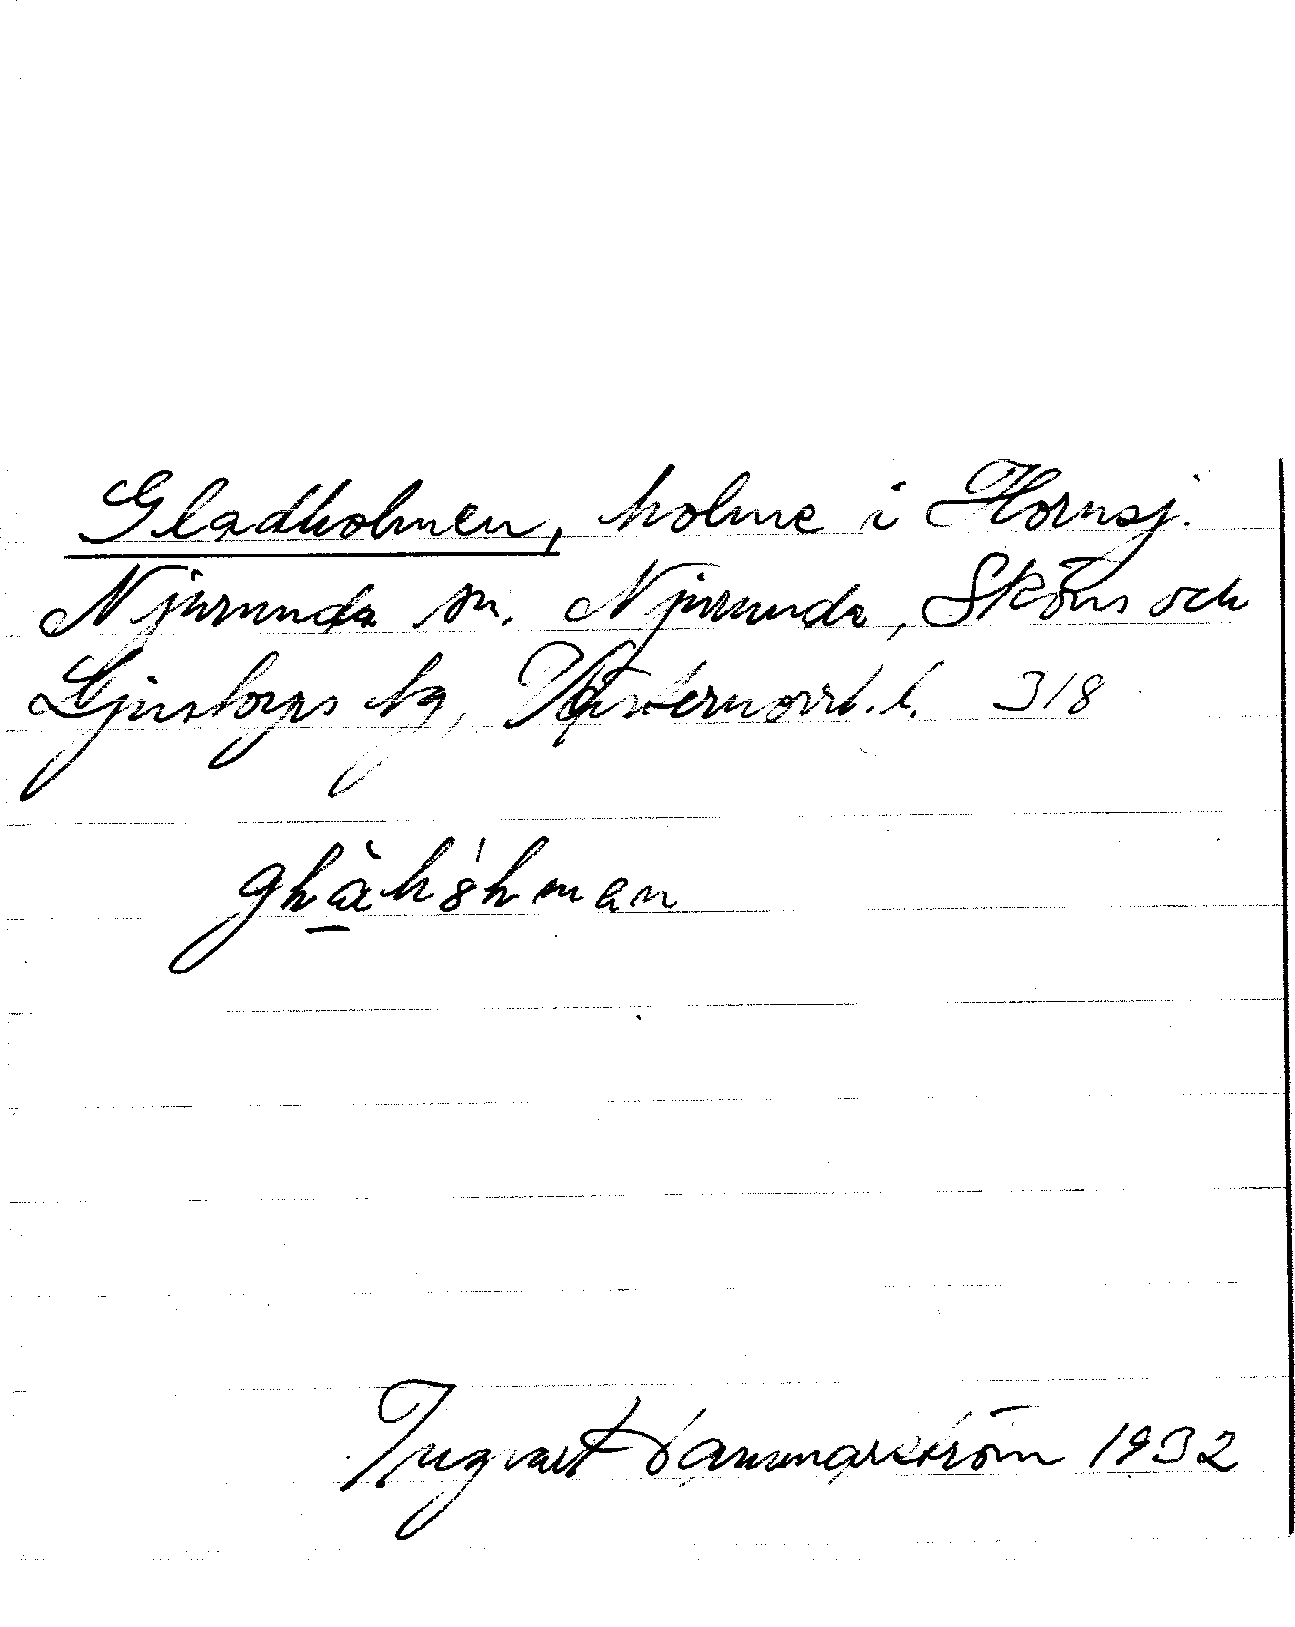 Gladholmen, holme i Hornsj.
Njurunda sn. Njurunda, Sköns och
Ljustorps tg, Västernorrl. l. 318
Ingvart Hammarström 1932